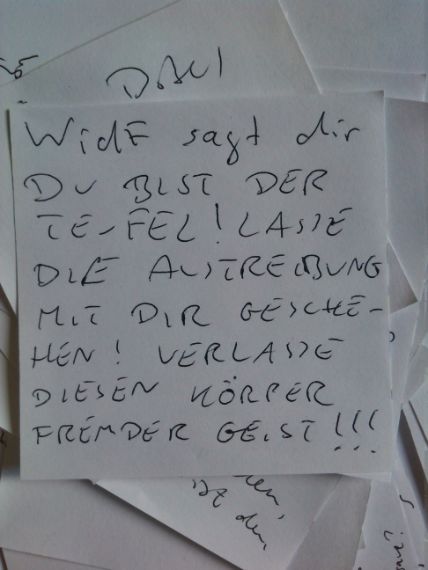 DALI
WidF sagt dir
DU BIST DER
TEUFEL! LASSE
DIE AUSTREIBUNG
MIT DIR GESCHE-
HEN! VERLASSE
DIESEN KÖRPER
FREMDER GEIST!!!
den,